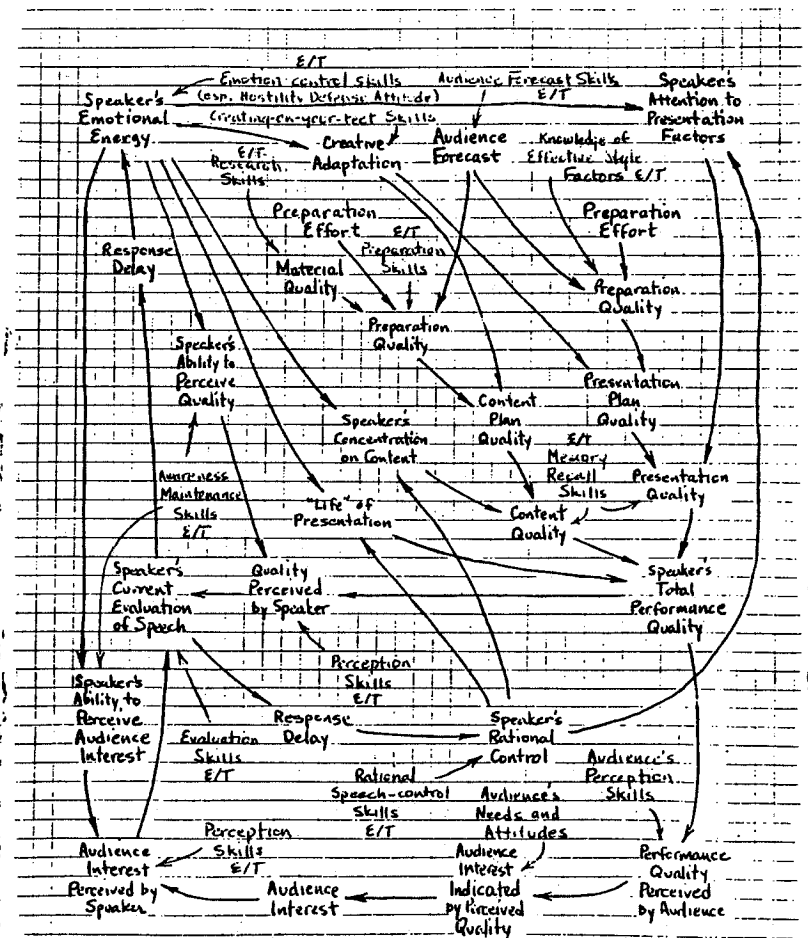 E/T
Emotion control skills
(esp. Hostility Defense Attitude)
Creating-on-your-feet Skills
Audience Forecast Skills
E/T
Speaker's
Attention to
Presentation
Factors
Speaker's
Emotional
Energy
E/T
Research
Skills
Creative
Adaptation
Audience
Forecast
Knowledge of
Effective Style
Factors E/T
Preparation
Effort
E/T
Preparation
Skills
Preparation
Effort
Response
Delay
Material
Quality
Preparation
Quality
Preparation
Quality
Speaker's
Ability to
Perceive
Quality
Presentation
Plan
Quality
Content
Plan
Quality
Speaker's
Concentration
on Content
E/T
Memory
Recall
Skills
Presentation
Quality
Awareness
Maintenance
Skills
E/T
"Life" of
Presentation
Content
Quality
Speaker's
Current
Evaluation
of Speech
Quality
Perceived
by Speaker
Speaker's
Total
Performance
Quality
Perception
Skills
E/T
Speaker's
Ability to
Perceive
Audience
Interest
Evaluation
Skills
E/T
Response
Delay
Speaker's
Rational
Control
Rational
Speech-control
Skills
E/T
Audience's
Needs and
Attitudes
Audience's
Perception
Skills
Perception
Skills
E/T
Audience
Interest
Perceived by
Speaker
Audience
Interest
Audience
Interest
Indicated
by Perceived
Quality
Performance
Quality
Perceived
by Audience